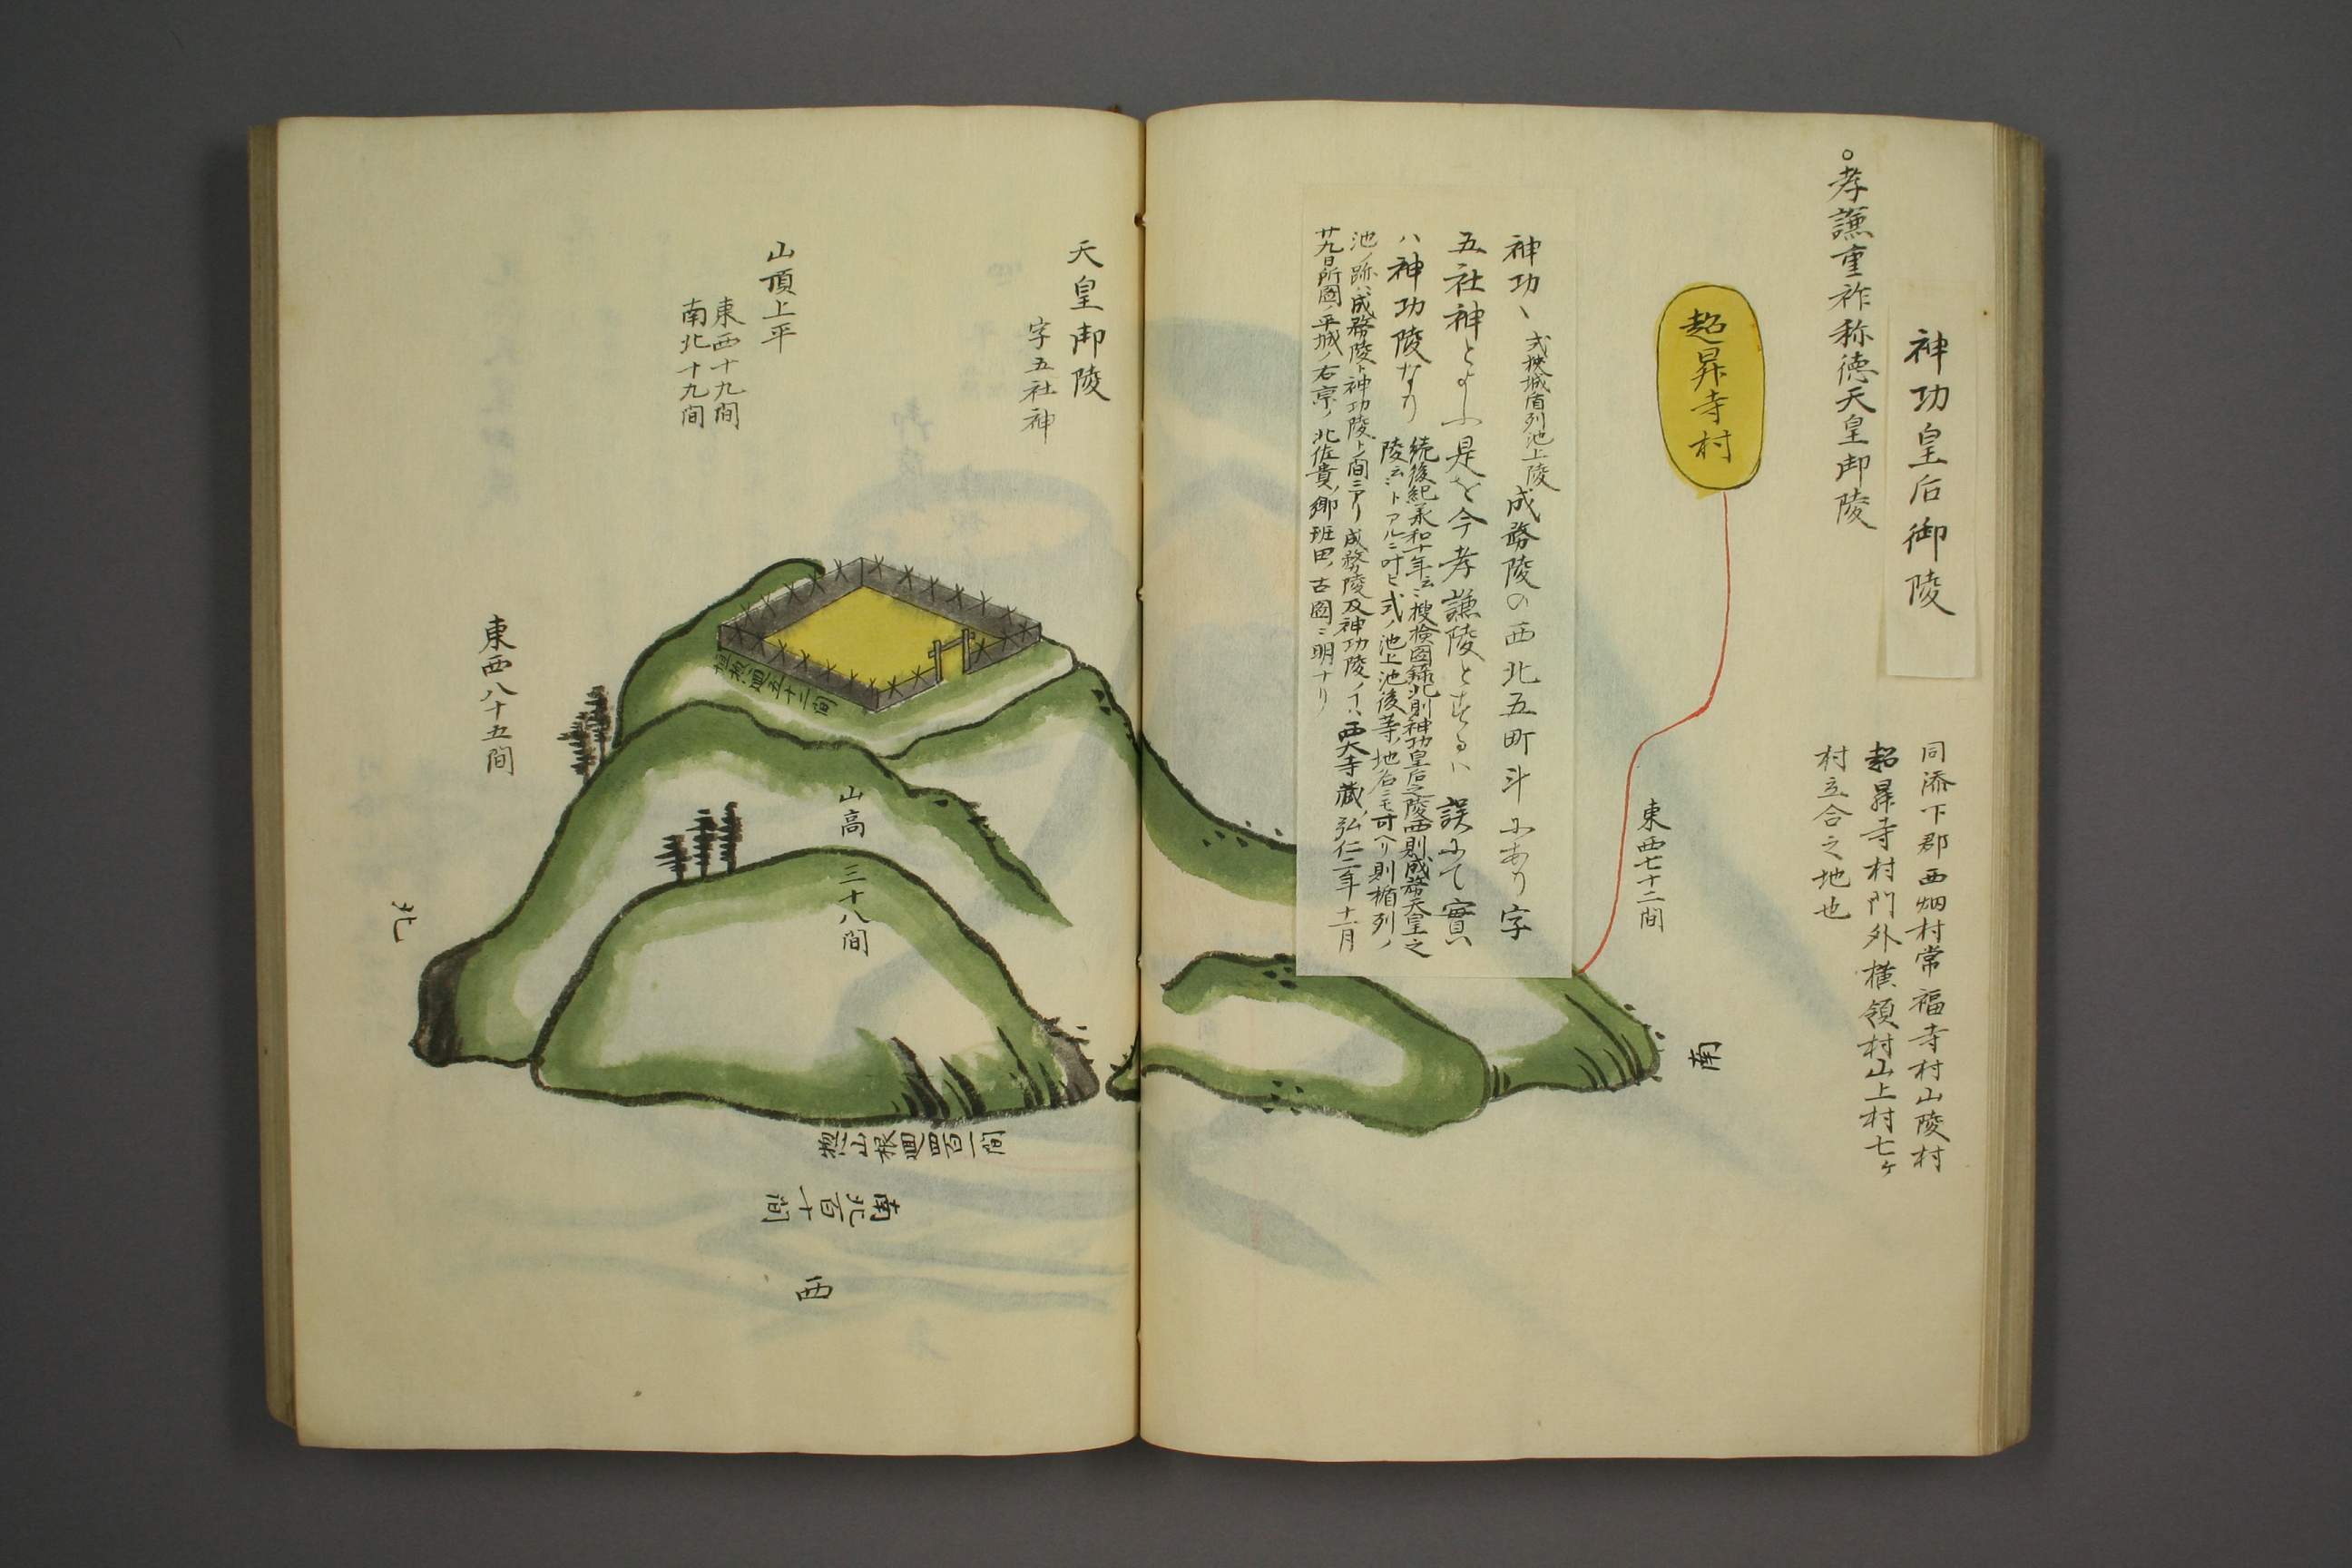 神功皇后御陵
○孝謙重祚称徳天皇御陵
同添下郡西畑村常福寺村山陵村
超昇寺村門外横領村山上村七ケ
村立合之地也
超昇寺村
東西七十二間
南
神功ハ 式狭城盾列池上陵 成務陵の西北五町斗にあり字
五社神とよふ是を今孝謙陵とするハ誤にて實ハ
ハ神功陵なり 続後紀承和十年云々捜検図録北則神功皇后之陵西則成務天皇之
陵云々トアルニ叶ヒ式ノ池上池後等ノ地名ニモ可ヘリ則楯列ノ
池ノ跡ハ成務陵ト神功陵トノ間ニアリ成務陵及神功陵ノ丁ハ西大寺蔵ノ弘仁二年十二月
廿九日所図ノ平城ノ右京ノ北佐貴ノ郷班田ノ古図ニ明ナリ
天皇御陵
字五社神
山頂上平
東西十九間
南北十九間
垣根廻五十二間
東西八十五間
山高三十八間
北
惣山根廻四百一間
南北百十間
西